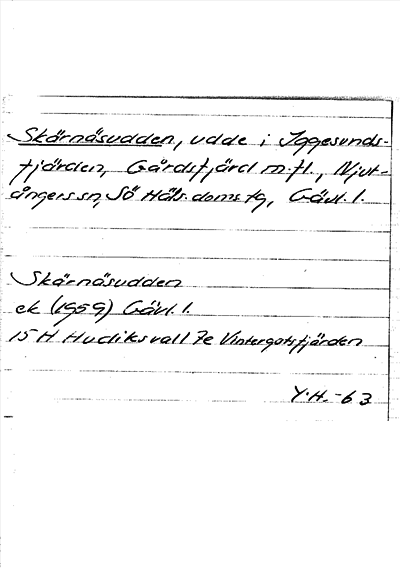 Skärnäsudden, udde i Iggesunds-
fjärden, Gårdsfjärd m.fl., Njut-
ångers sn, Sö Häls. doms tg, Gävl. l.
Skärnäsudden
ek (1959) Gävl. l.
15 H Hudiksvall 7e Vintergatsfjärden
Y.H. -63